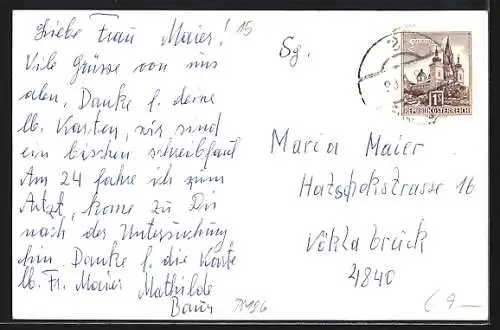 Liebe Frau Maier! 15
Vile Grüsse von uns
alen, Danke f. deine
lb. Karten, wir sind
ein bischen schreibfaul
Am 24 fahre ich zum
Artzt, kome zu Dir
nach der Untersuchung
hin. Danke f. die Karte
lb. Fr. Maier Mathilde
Baur
Sg.
1S
REPUBLIK ÖSTERREICH
Maria Maier
Hatschekstrasse 16
Vöklabruck
4840